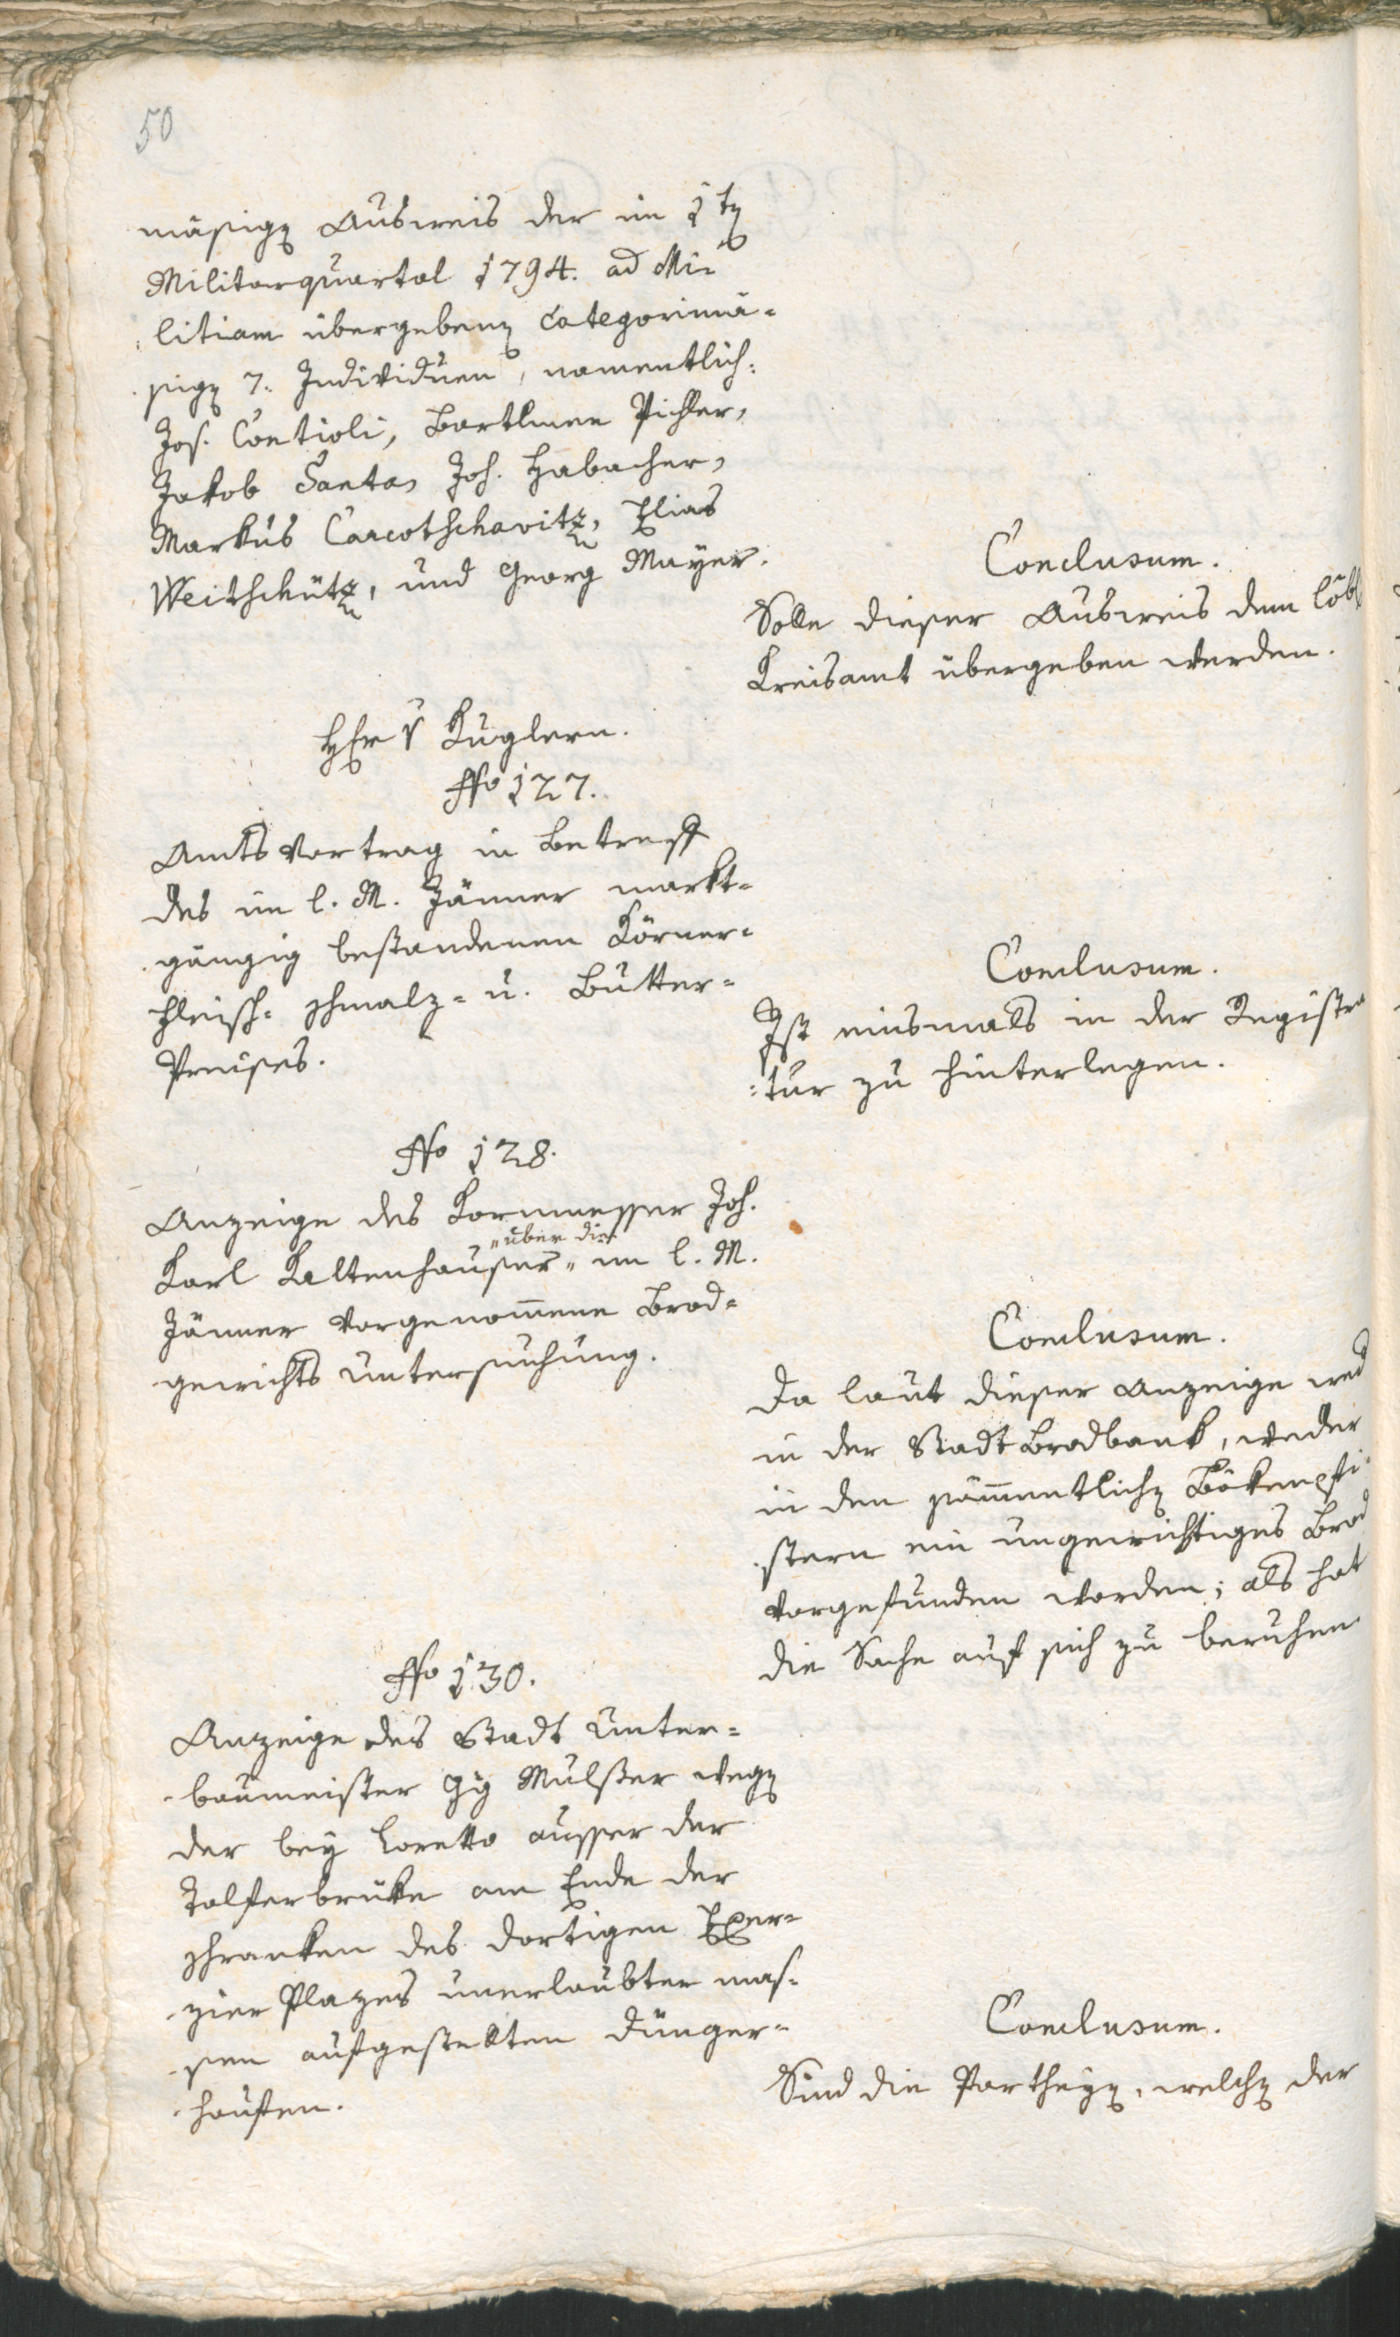 50
mäsigen Ausweis der im 1ten
Militarquartal 1794. ad Mi-
litiam übergebenen Categorimä-
sigen 7. Individuen, namentlich:
Jos. Contioli, Bartlmee Pichler,
Jakob Santa, Joh. Habacher,
Markus Carcotschavitz, Elias
Weitschütz, und Georg Mayer.
Conclusum.
Solle dieser Ausweis dem löbl
Kreisamt übergeben werden.
Kuglern.
No 127.
Amts Vortrag in Betreff
des im l. M. Jänner markt-
gängig bestandenen Körner-
Fleisch- Schmalz- u. Butter-
Preises.
Conclusum.
Ist einsmals in der Registra
-tur zu hinterlegen.
No 128.
Anzeige des Kornmesser Joh.
Karl Kaltenhauser „über die„ im l. M.
Jänner vorgenommene Brod-
gewichts Untersuchung.
Conclusum.
Da laut dieser Anzeige wed
in der Stadt Brodbank, weder
in den sämmentlichen Bökenpfi-
stern ein ungewichtiges Brod
vorgefunden worden; als hat
die Sache auf sich zu beruhen
No 130.
Anzeige des Stadt Unter-
baumeister Gg Mulser wegen
der bey Loretto ausser der
Talferbruke am Ende der
Schranken des dortigen Exer-
zier Plazes unerlaubter mas-
sen aufgestellten Dünger-
haufen.
Conclusum.
Sind die Partheyen, welche der